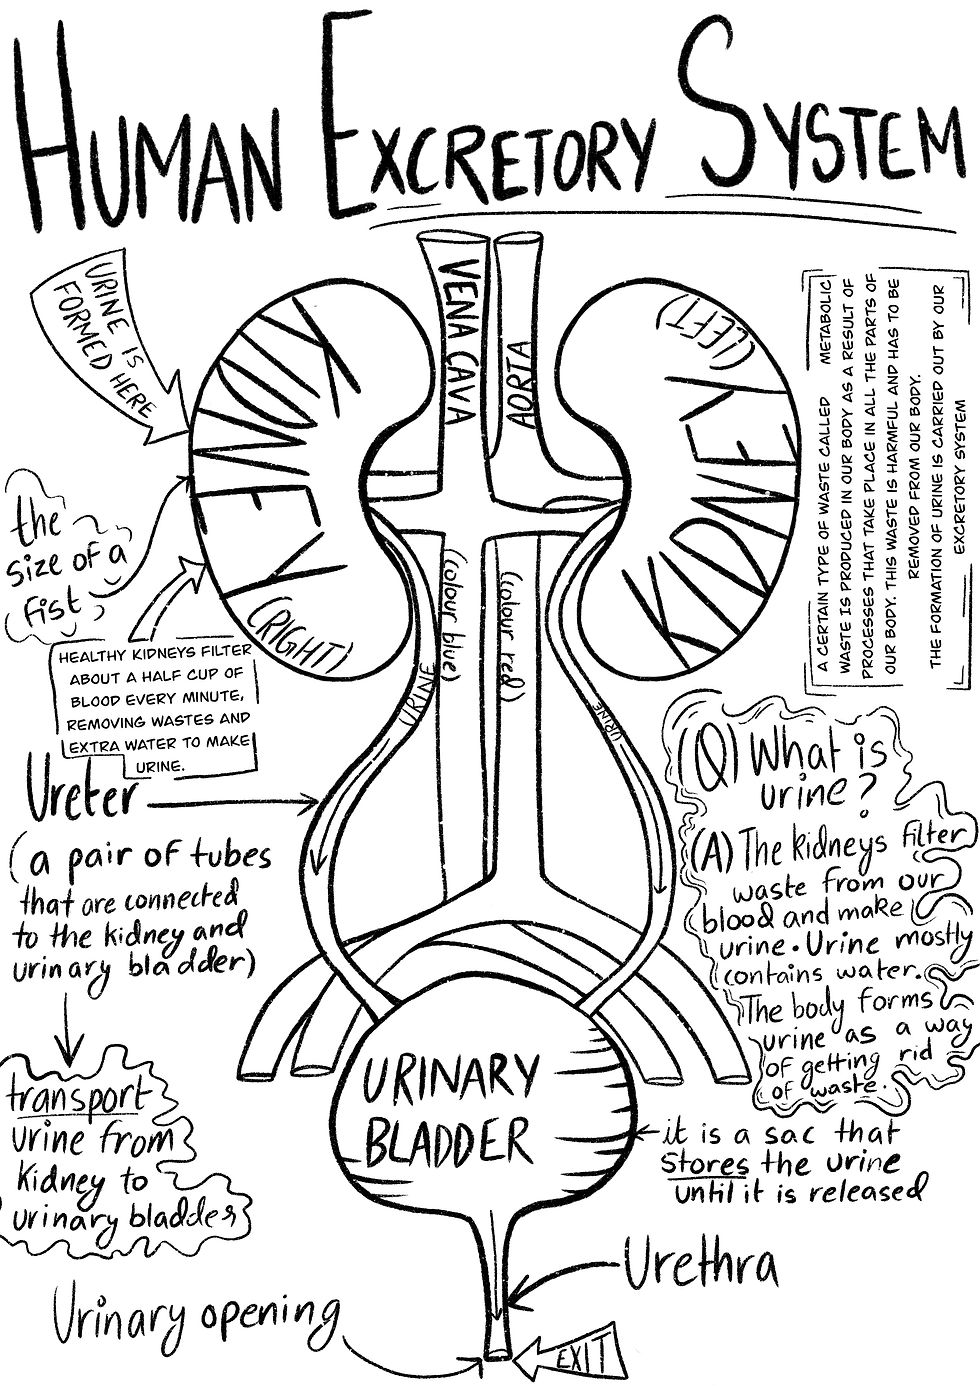 HUMAN EXCRETORY SYSTEM
URINE IS
FORMED HERE
VENA CAVA
AORTA
KIDNEY
(RIGHT)
KIDNEY
(LEFT)
the
size of a
fist
HEALTHY KIDNEYS FILTER
ABOUT A HALF CUP OF
BLOOD EVERY MINUTE,
REMOVING WASTES AND
EXTRA WATER TO MAKE
URINE.
(colour blue)
(colour red)
URINE
URINE
A CERTAIN TYPE OF WASTE CALLED METABOLIC
WASTE IS PRODUCED IN OUR BODY AS A RESULT OF
PROCESSES THAT TAKE PLACE IN ALL THE PARTS OF
OUR BODY. THIS WASTE IS HARMFUL AND HAS TO BE
REMOVED FROM OUR BODY.
THE FORMATION OF URINE IS CARRIED OUT BY OUR
EXCRETORY SYSTEM
Ureter
(a pair of tubes
that are connected
to the kidney and
urinary bladder)
transport
urine from
kidney to
urinary bladder
(Q) What is
urine?
(A) The kidneys filter
waste from our
blood and make
urine. Urine mostly
contains water.
The body forms
urine as a way
of getting rid
of waste.
URINARY
BLADDER
it is a sac that
stores the urine
until it is released
Urethra
Urinary opening
EXIT